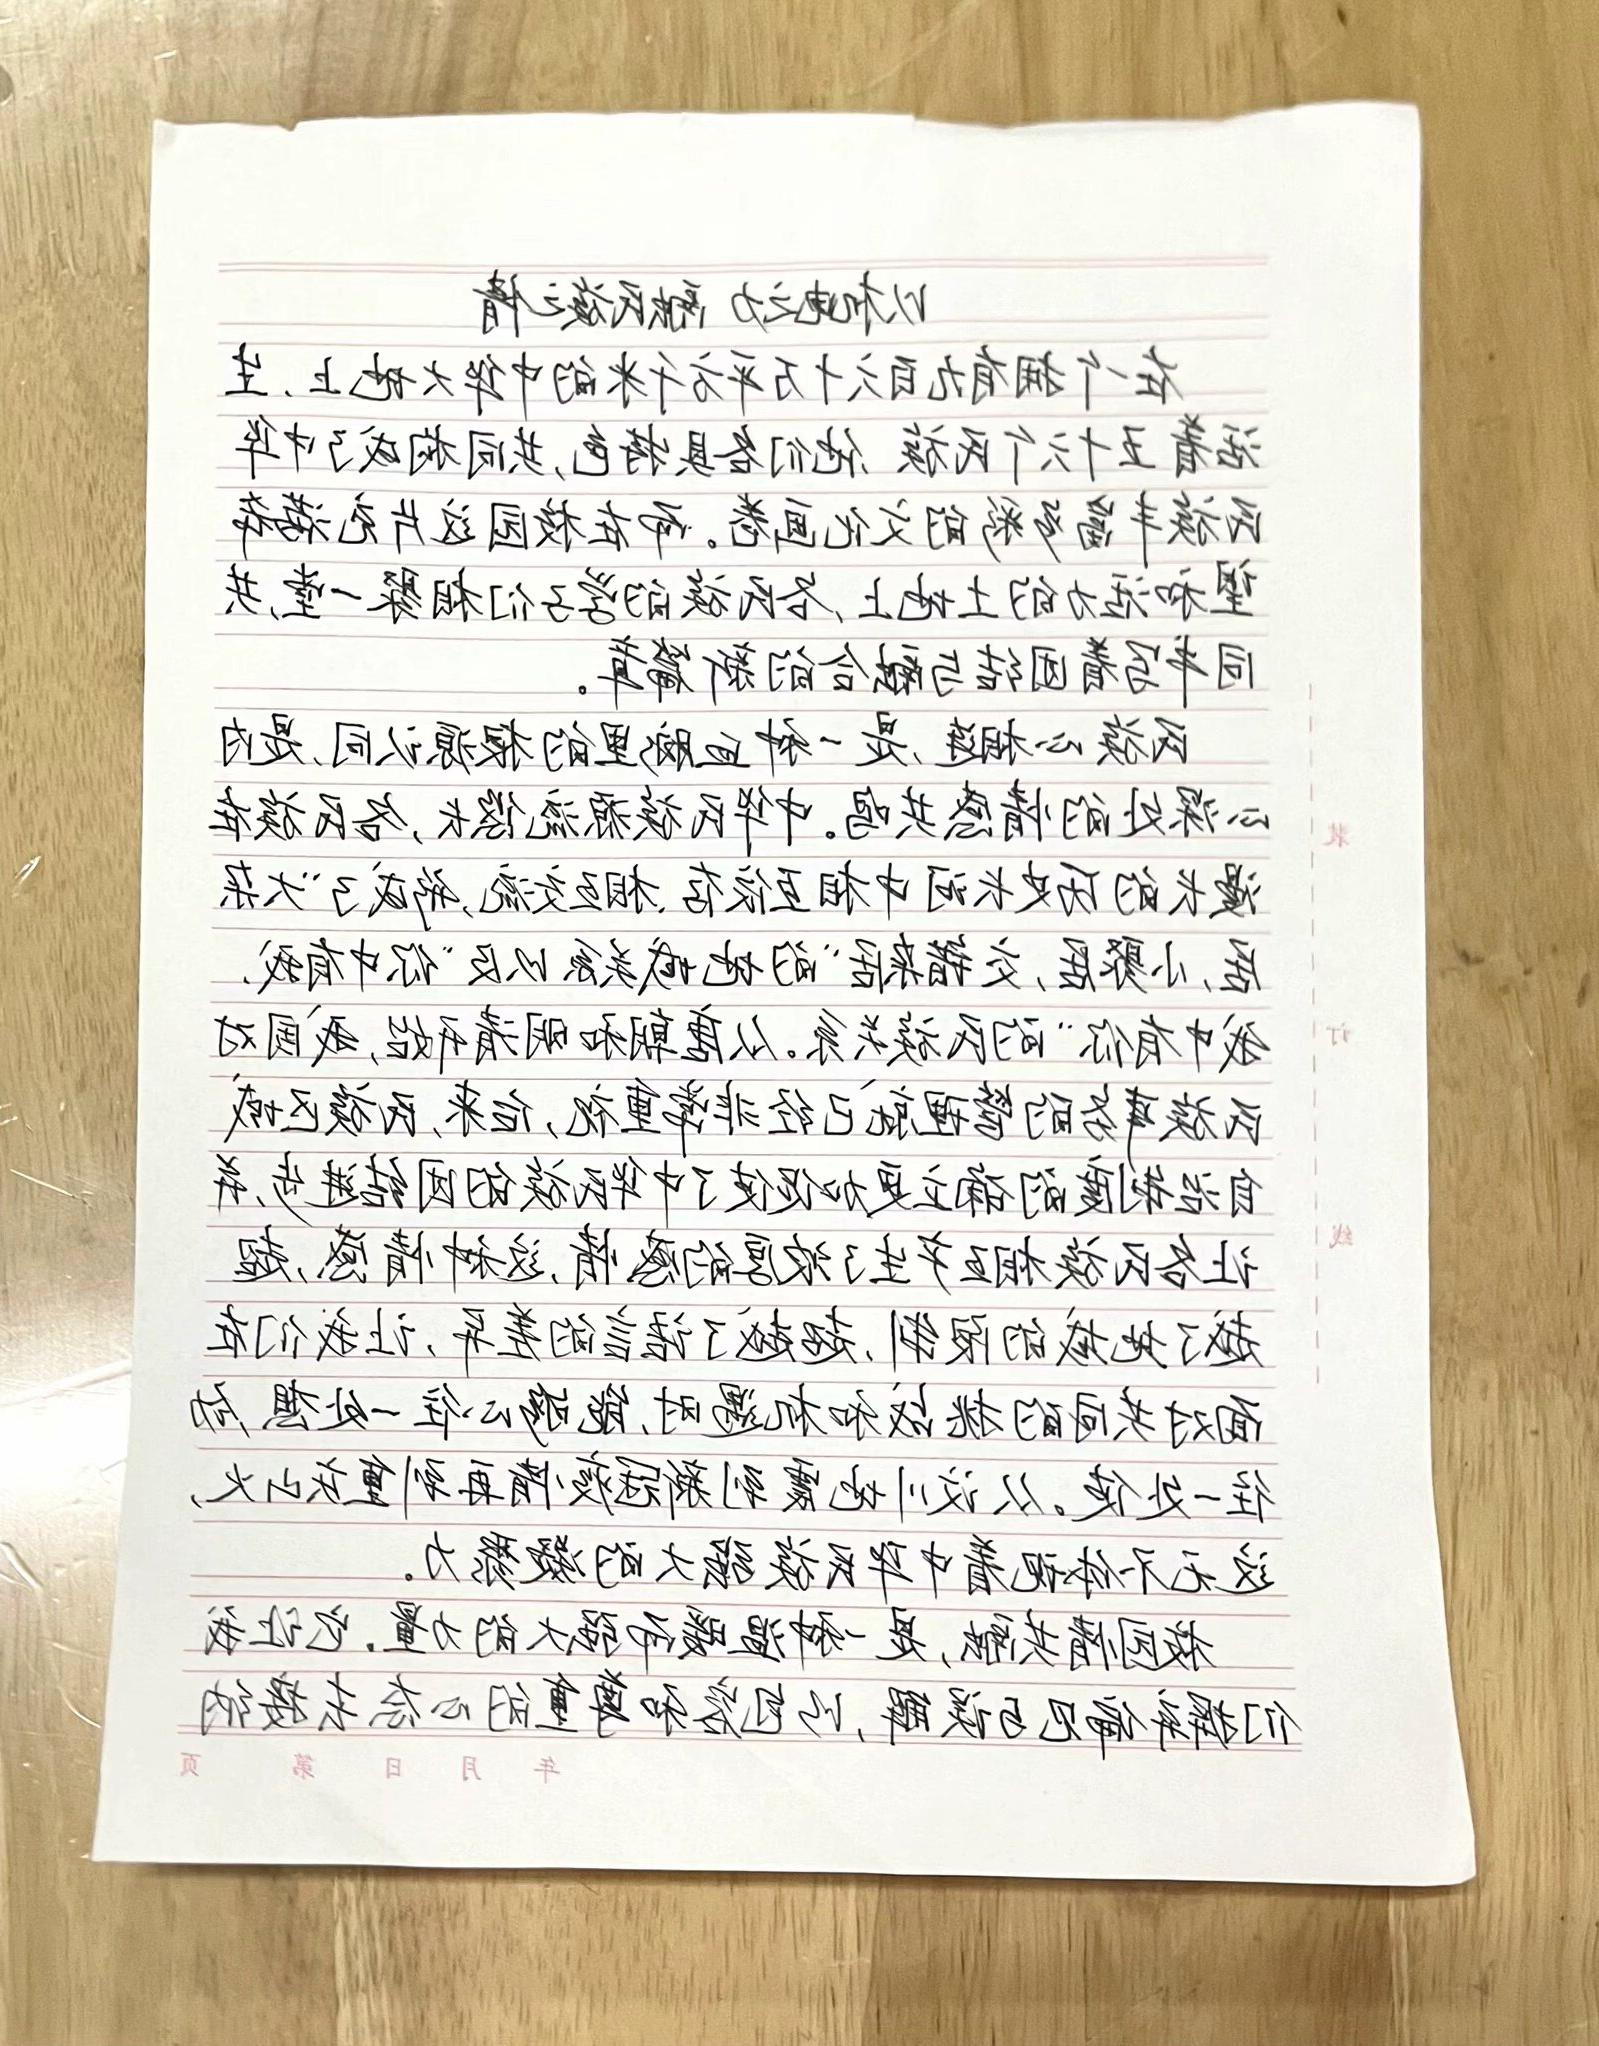 以机电之力 融民族之情
在一个拥有九百六十万平方千米的中华大地上,生
活着五十六个民族,他们各具特色,共同构成了中华
民族丰富多彩的文化画卷。而在校园这片充满希
望和活力的土地上,各民族的学子们相聚一堂,共
同书写着团结与融合的新篇章。
民族心相连,是一种血脉里的根源认同,是内
心深处的情感共鸣。中华民族源流悠长,各民族在
漫长的历史长河中相互依存,相互交流,形成了“大杂
居,小聚居,交错杂居”的地域关系以及“你中有我,
我中有你”的民族关系。从唐朝和明清开始,我国对
民族事务的管理就已经非常重视,后来,民族区域
自治制度的确立更加促使了中华民族的团结进步,并
让各民族相互产生了浓厚的感情,这种情感,超
越了地域的限制,超越了语言的差异,让我们在
面对共同的挑战和机遇时,能够心往一处想,劲
往一处使。从汶川地震到新冠疫情再到重庆山火,
这无不体现着中华民族强大的凝聚力。
校园情共融,是一种温暖而强大的力量。它让我
们摒弃偏见与误解,以包容和尊重的心态去接纳
装
订
线
年 月 日 第 页